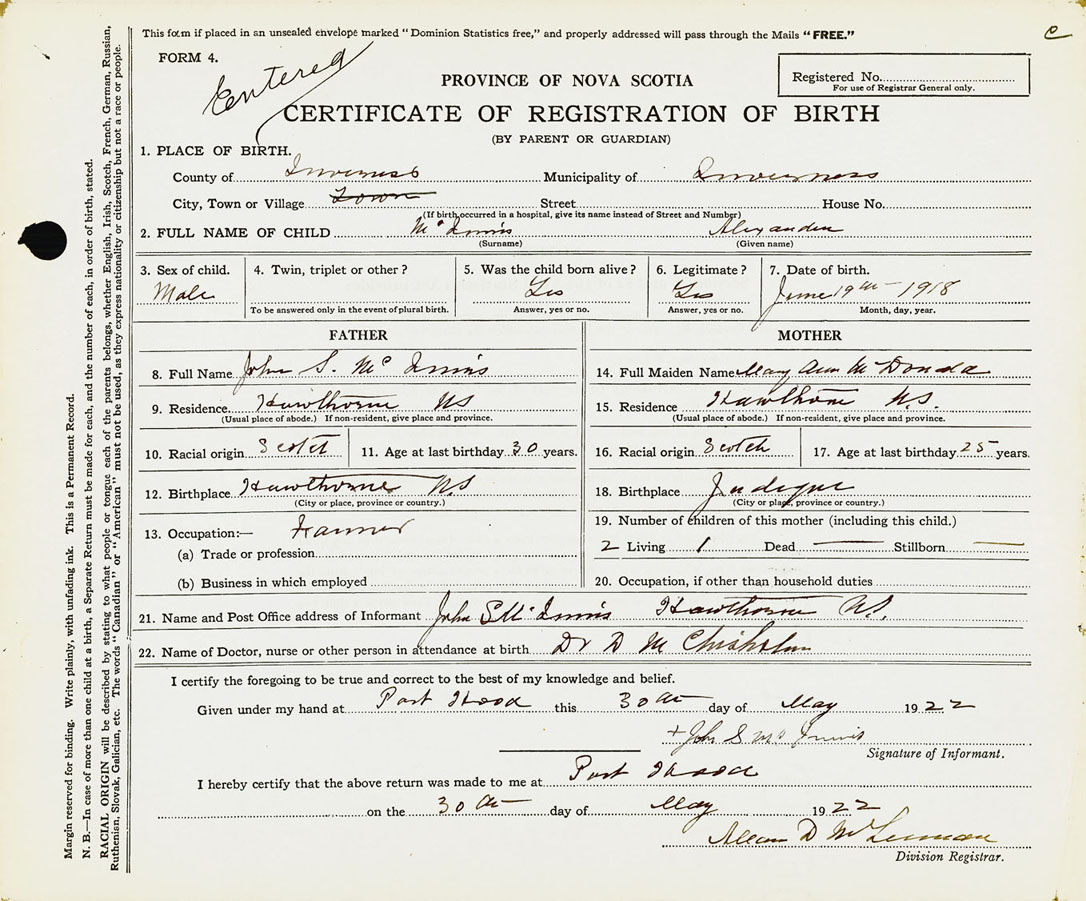 This form if placed in an unsealed envelope marked "Dominion Statistics free," and properly addressed will pass through the Mails "FREE."
C
FORM 4.
Entered
Registered No.
For use of Registrar General only.
PROVINCE OF NOVA SCOTIA
CERTIFICATE OF REGISTRATION OF BIRTH
(BY PARENT OR GUARDIAN)
1. PLACE OF BIRTH.
County of Inverness Municipality of Inverness
City, Town or Village Town Street House No.
(If birth occurred in a hospital, give its name instead of Street and Number)
2. FULL NAME OF CHILD McInnis Alexander
(Surname) (Given name)
3. Sex of child. 4. Twin, triplet or other? 5. Was the child born alive? 6. Legitimate? 7. Date of birth.
Male Yes Yes June 19th - 1918
To be answered only in the event of plural birth. Answer, yes or no. Answer, yes or no. Month, day, year.
FATHER
8. Full Name John S. McInnis
9. Residence Hawthorne NS
(Usual place of abode.) If non-resident, give place and province.
10. Racial origin Scotch 11. Age at last birthday 30 years.
12. Birthplace Hawthorne NS
(City or place, province or country.)
13. Occupation:— Farmer
(a) Trade or profession
(b) Business in which employed
MOTHER
14. Full Maiden Name Mary Ann McDonald
15. Residence Hawthorne N.S.
(Usual place of abode.) If non-resident, give place and province.
16. Racial origin Scotch 17. Age at last birthday 25 years.
18. Birthplace Judique
(City or place, province or country.)
19. Number of children of this mother (including this child.)
2 Living 1 Dead — Stillborn —
20. Occupation, if other than household duties
21. Name and Post Office address of Informant John S McInnis Hawthorne N.S.
22. Name of Doctor, nurse or other person in attendance at birth Dr D M Chisholm
I certify the foregoing to be true and correct to the best of my knowledge and belief.
Given under my hand at Port Hood this 30th day of May 1922
+John S McInnis
Signature of Informant.
I hereby certify that the above return was made to me at Port Hood
on the 30th day of May 1922
Allan D McLennan
Division Registrar.
Margin reserved for binding. Write plainly, with unfading ink. This is a Permanent Record.
N. B.—In case of more than one child at a birth, a Separate Return must be made for each, and the number of each, in order of birth, stated.
RACIAL ORIGIN will be described by stating to what people or tongue each of the parents belongs, whether English, Irish, Scotch, French, German, Russian,
Ruthenian, Slovak, Galician, etc. The words "Canadian" or "American" must not be used, as they express nationality or citizenship but not a race or people.